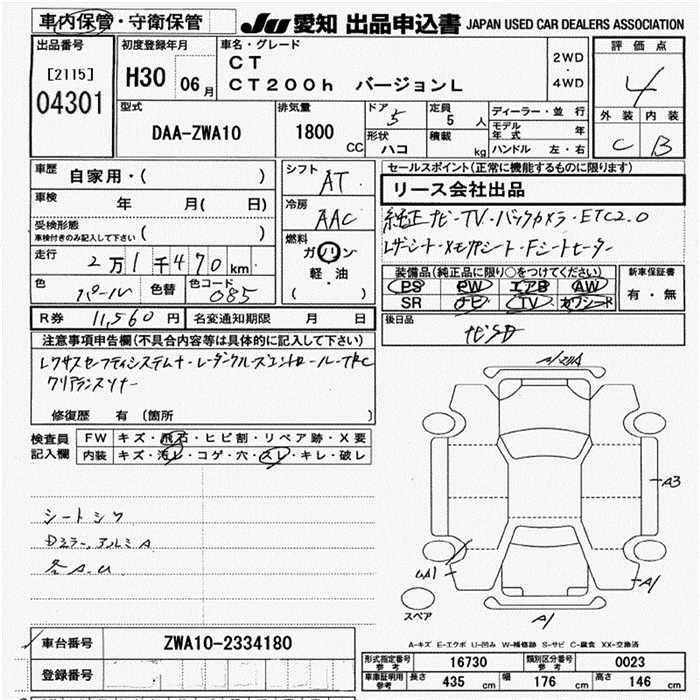 車内保管・守衛保管
JU 愛知 出品申込書 JAPAN USED CAR DEALERS ASSOCIATION
出品番号
[2115]
04301
初度登録年月
H30 06月
車名・グレード
CT
CT200h バージョンL
2WD
・
4WD
評価点
4
外装 内装
C B
型式
DAA-ZWA10
排気量
1800 CC
ドア
5
定員
5 人
形状
ハコ
積載
kg
ディーラー・並 行
モデル年式 年
ハンドル 左・右
車歴
自家用・( )
車検
年 月( 日)
受検形態
車検付きのみ記入して下さい ( )
走行
2万1千470km
色
パール
色替
色コード
085
シフト
AT
冷房
AAC
燃料
ガソリン
軽・油
( )
セールスポイント(正常に機能するものに限ります)
リース会社出品
純正ナビ・TV・バックカメラ・ETC2.0
レザーシート・メモリーシート・Fシートヒーター
装備品(純正品に限り○をつけてください)
PS PW エアB AW
SR ナビ TV カワシート
新車保証書
有・無
後日品
ナビSD
R券 11,560円 名変通知期限 月 日
注意事項申告欄(不具合内容等は具体的に記入して下さい)
レクサスセーフティシステム+・レーダークルーズコントロール・TRC
クリアランスソナー
修復歴 有 (箇所 )
検査員記入欄
FW キズ・飛石・ヒビ割・リペア跡・X要
内装 キズ・汚レ・コゲ・穴・スレ・キレ・破レ
シートシワ
Dミラー、アルミA
各A.U
A3
A1
A1
スペア
A-キズ E-エクボ U-凹み W-補修跡 S-サビ C-腐食 XX-交換済
車台番号 ZWA10-2334180
登録番号
形式指定番号 参考 16730 類別区分番号 参考 0023
車庫証明用 参考 長さ 435 cm 幅 176 cm 高さ 146 cm